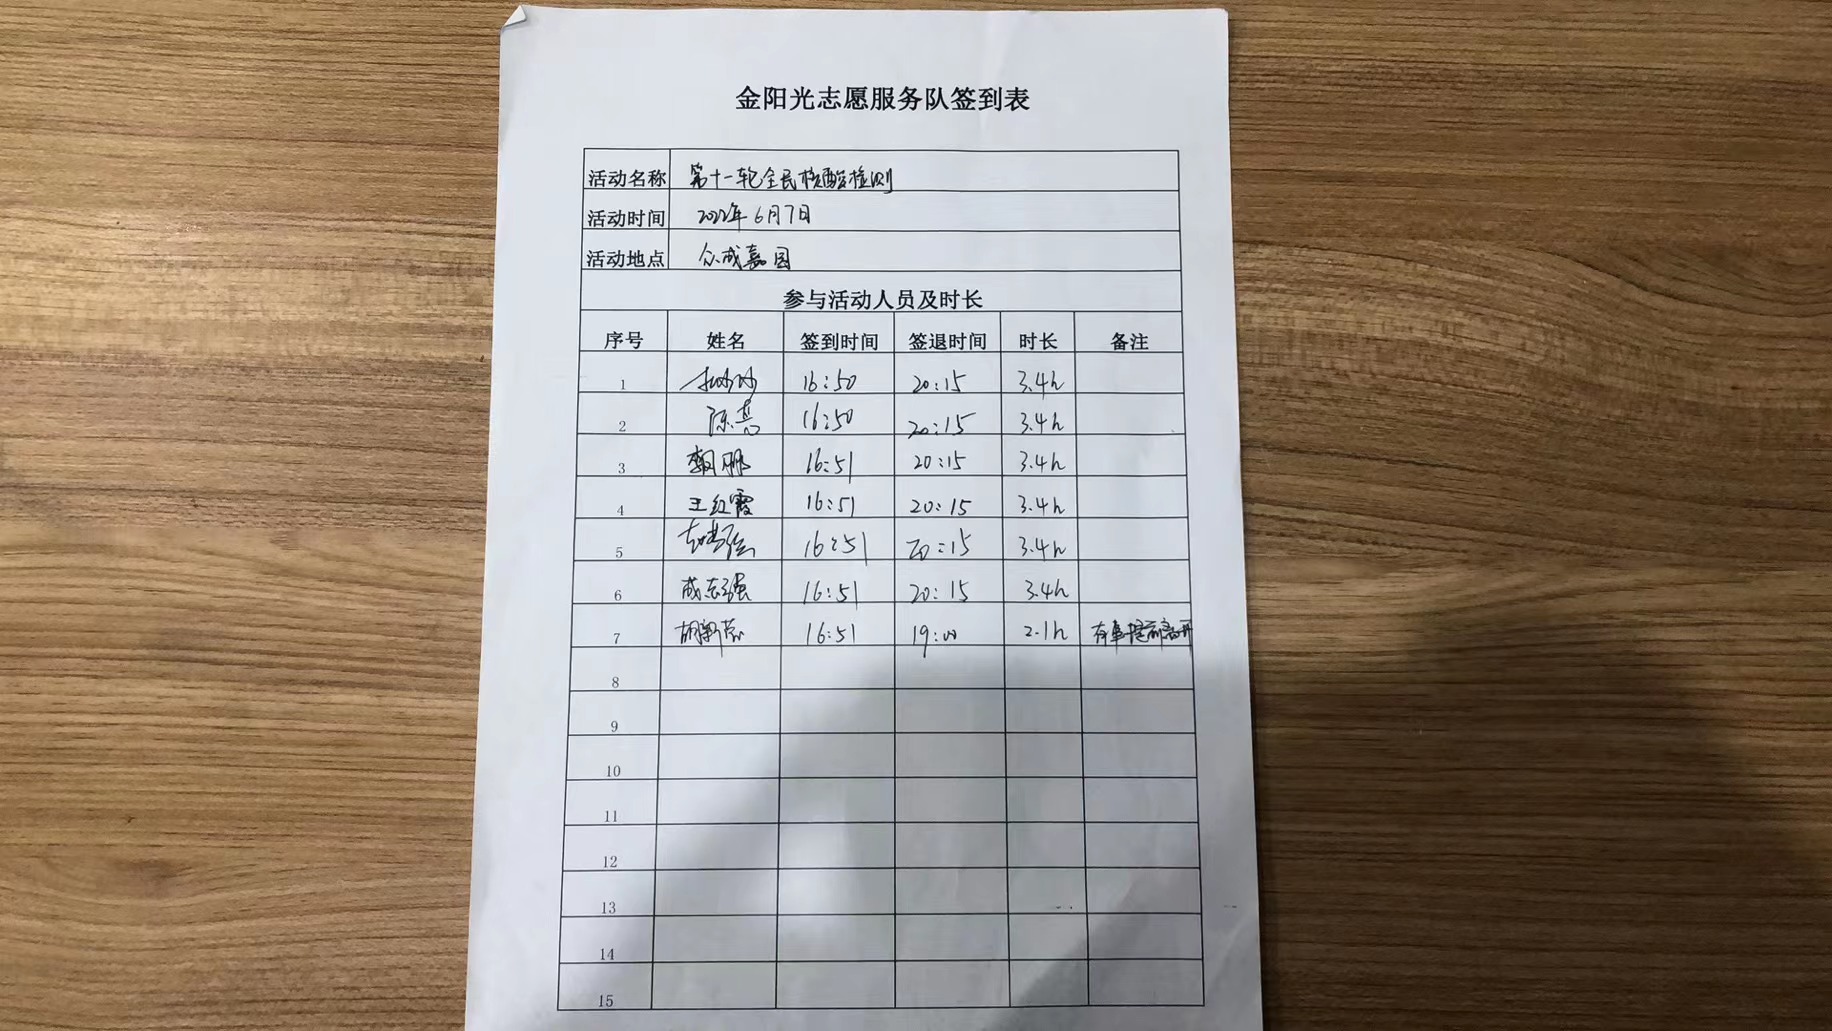 金阳光志愿服务队签到表
活动名称 第十一轮全民核酸检测
活动时间 2022年6月7日
活动地点 众成嘉园
参与活动人员及时长
序号 姓名 签到时间 签退时间 时长 备注
1 16:50 20:15 3.4h
2 陈亮 16:50 20:15 3.4h
3 16:51 20:15 3.4h
4 王红霞 16:51 20:15 3.4h
5 16:51 20:15 3.4h
6 成志强 16:51 20:15 3.4h
7 16:51 19:00 2.1h 有事提前离开
8
9
10
11
12
13
14
15